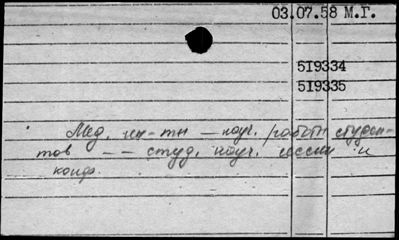 03.07.58 М.Г.
519334
519335
Мед. ин-ты — науч. работы студен-
тов — — студ. науч. сессии и
конф.